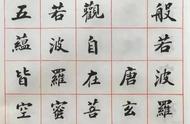 般若波羅
唐玄
觀自在菩
若波羅蜜
五蘊皆空